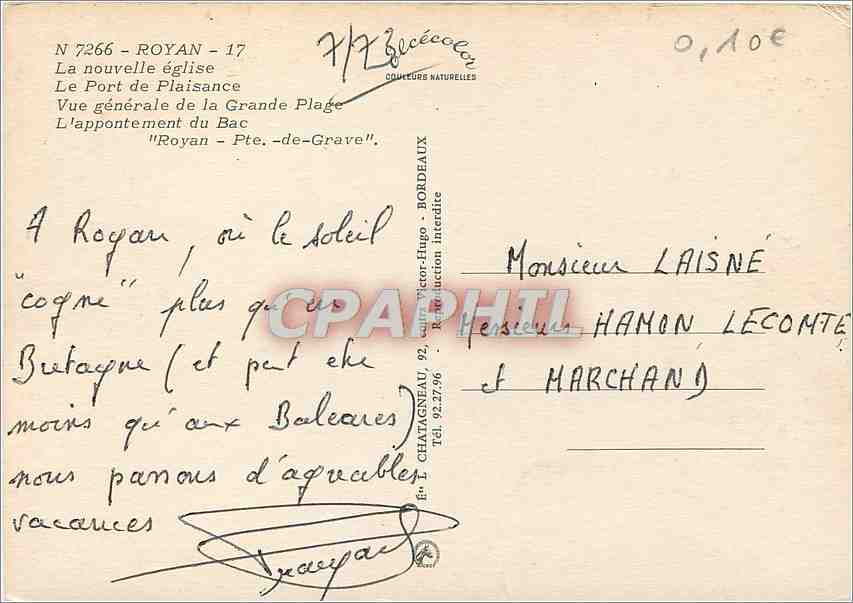 N 7266 - ROYAN - 17
La nouvelle église
Le Port de Plaisance
Vue générale de la Grande Plage
L'appontement du Bac
"Royan - Pte. -de-Grave".
7/73
elcécolor
COULEURS NATURELLES
0,10€
A Royan, où le soleil
"cogne" plus qu'en
Bretagne (et peut etre
moins qu'aux Baleares)
nous passons d'agreables
vacances
Éts L CHATAGNEAU, 92, cours Victor-Hugo - BORDEAUX
Tél. 92.27.96 - Reproduction interdite
CPAPHIL
Monsieur LAISNÉ
Messieurs HAMON LECOMTE
et MARCHAND